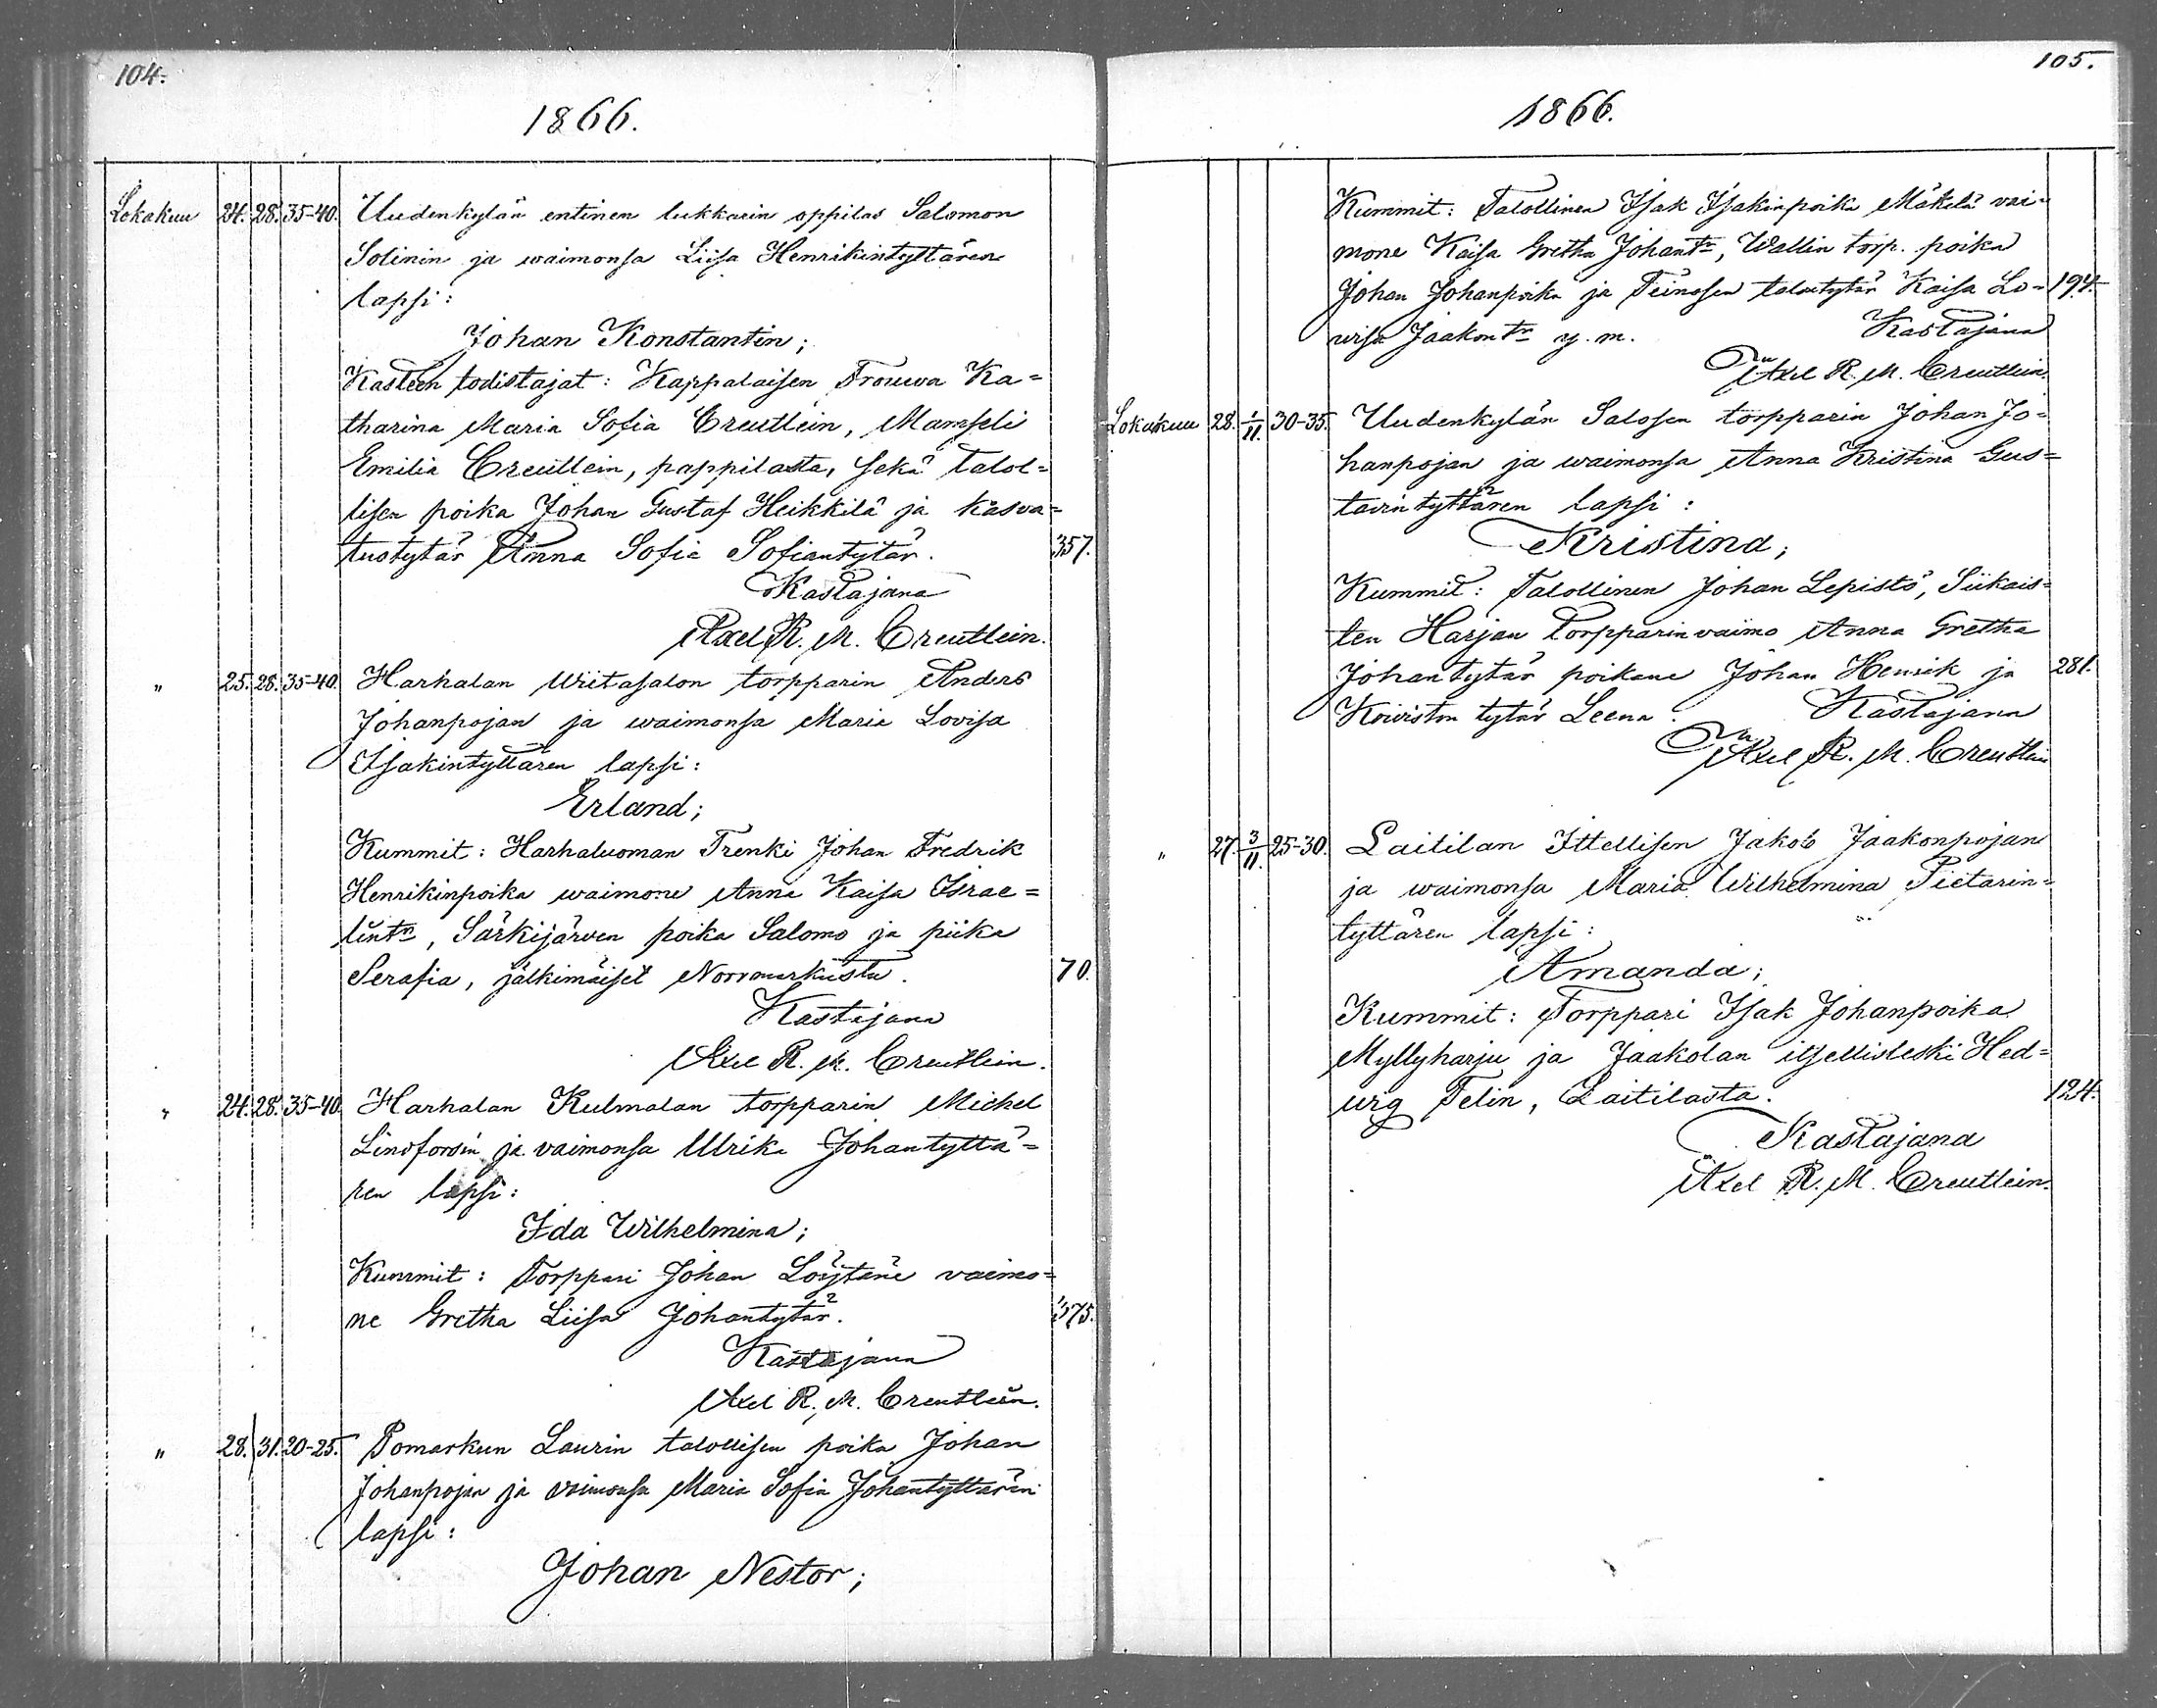 104.
1866.
Lokakuu 24. 28. 35-40. Uudenkylän entinen lukkarin oppilas Salomon
Solinin ja waimonsa Liisa Henrikintyttären
lapsi:
Johan Konstantin;
Kasteen todistajat: Kappalaisen Frouwa Ka=
tharina Maria Sofia Creutlein, Mamseli
Emilia Creutlein, pappilasta, sekä talol=
lisen poika Johan Gustaf Heikkilä ja kasva=
tustytär Anna Sofia Sofiantytär. 357.
Kastajana
Axel R. M. Creutlein.
" 25. 28. 35-40. Harhalan Wiitasalon torpparin Anders
Johanpojan ja waimonsa Maria Lovisa
Isakintyttären lapsi:
Erland;
Kummit: Harhaluoman Trenki Johan Fredrik
Henrikinpoika waimone Anna Kaisa Israe=
lintr, Särkijärven poika Salomo ja piika
Serafia, jälkimäiset Norrmarkusta. 70.
Kastajana
Axel R. M. Creutlein.
" 24. 28. 35-40. Harhalan Kulmalan torpparin Michel
Lindforsin ja vaimonsa Ulrika Johantyttä=
ren lapsi:
Ida Wilhelmina;
Kummit: Torppari Johan Löytäne vaimo=
ne Gretha Liisa Johantytär. 375.
Kastajana
Axel R. M. Creutlein.
" 28. 31. 20-25. Pomarkun Laurin talollisen poika Johan
Johanpojan ja vaimonsa Maria Sofia Johantyttären
lapsi:
Johan Nestor;
105.
1866.
Kummit: Talollinen Isak Isakinpoika Mäkelä vai=
mone Kaisa Gretha Johantr, Wallin torp. poika
Johan Johanpoika ja Teinosen talontytär Kaisa Lo= 194.
wisa Jaakontr y. m. Kastajana
Axel R. M. Creutlein.
Lokakuu 28. 1/11. 30-35. Uudenkylän Salosen torpparin Johan Jo=
hanpojan ja waimonsa Anna Kristina Gus=
tavintyttären lapsi:
Kristina;
Kummit: Talollinen Johan Lepistö, Siikais=
ten Harjan Torpparinvaimo Anna Gretha
Johantytär poikane Johan Henrik ja 281.
Koiviston tytär Leena. Kastajana
Axel R. M. Creutlein
" 27. 3/11. 25-30. Laitilan Ittellisen Jakob Jaakonpojan
ja waimonsa Maria Wilhelmina Pietarin=
tyttären lapsi:
Amanda;
Kummit: Torppari Isak Johanpoika
Myllyharju ja Jaakolan itsellisleski Hed=
wig Felin, Laitilasta. 124.
Kastajana
Axel R. M. Creutlein.